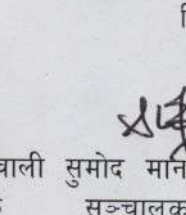 वाली सुमोद मान
सञ्चालक